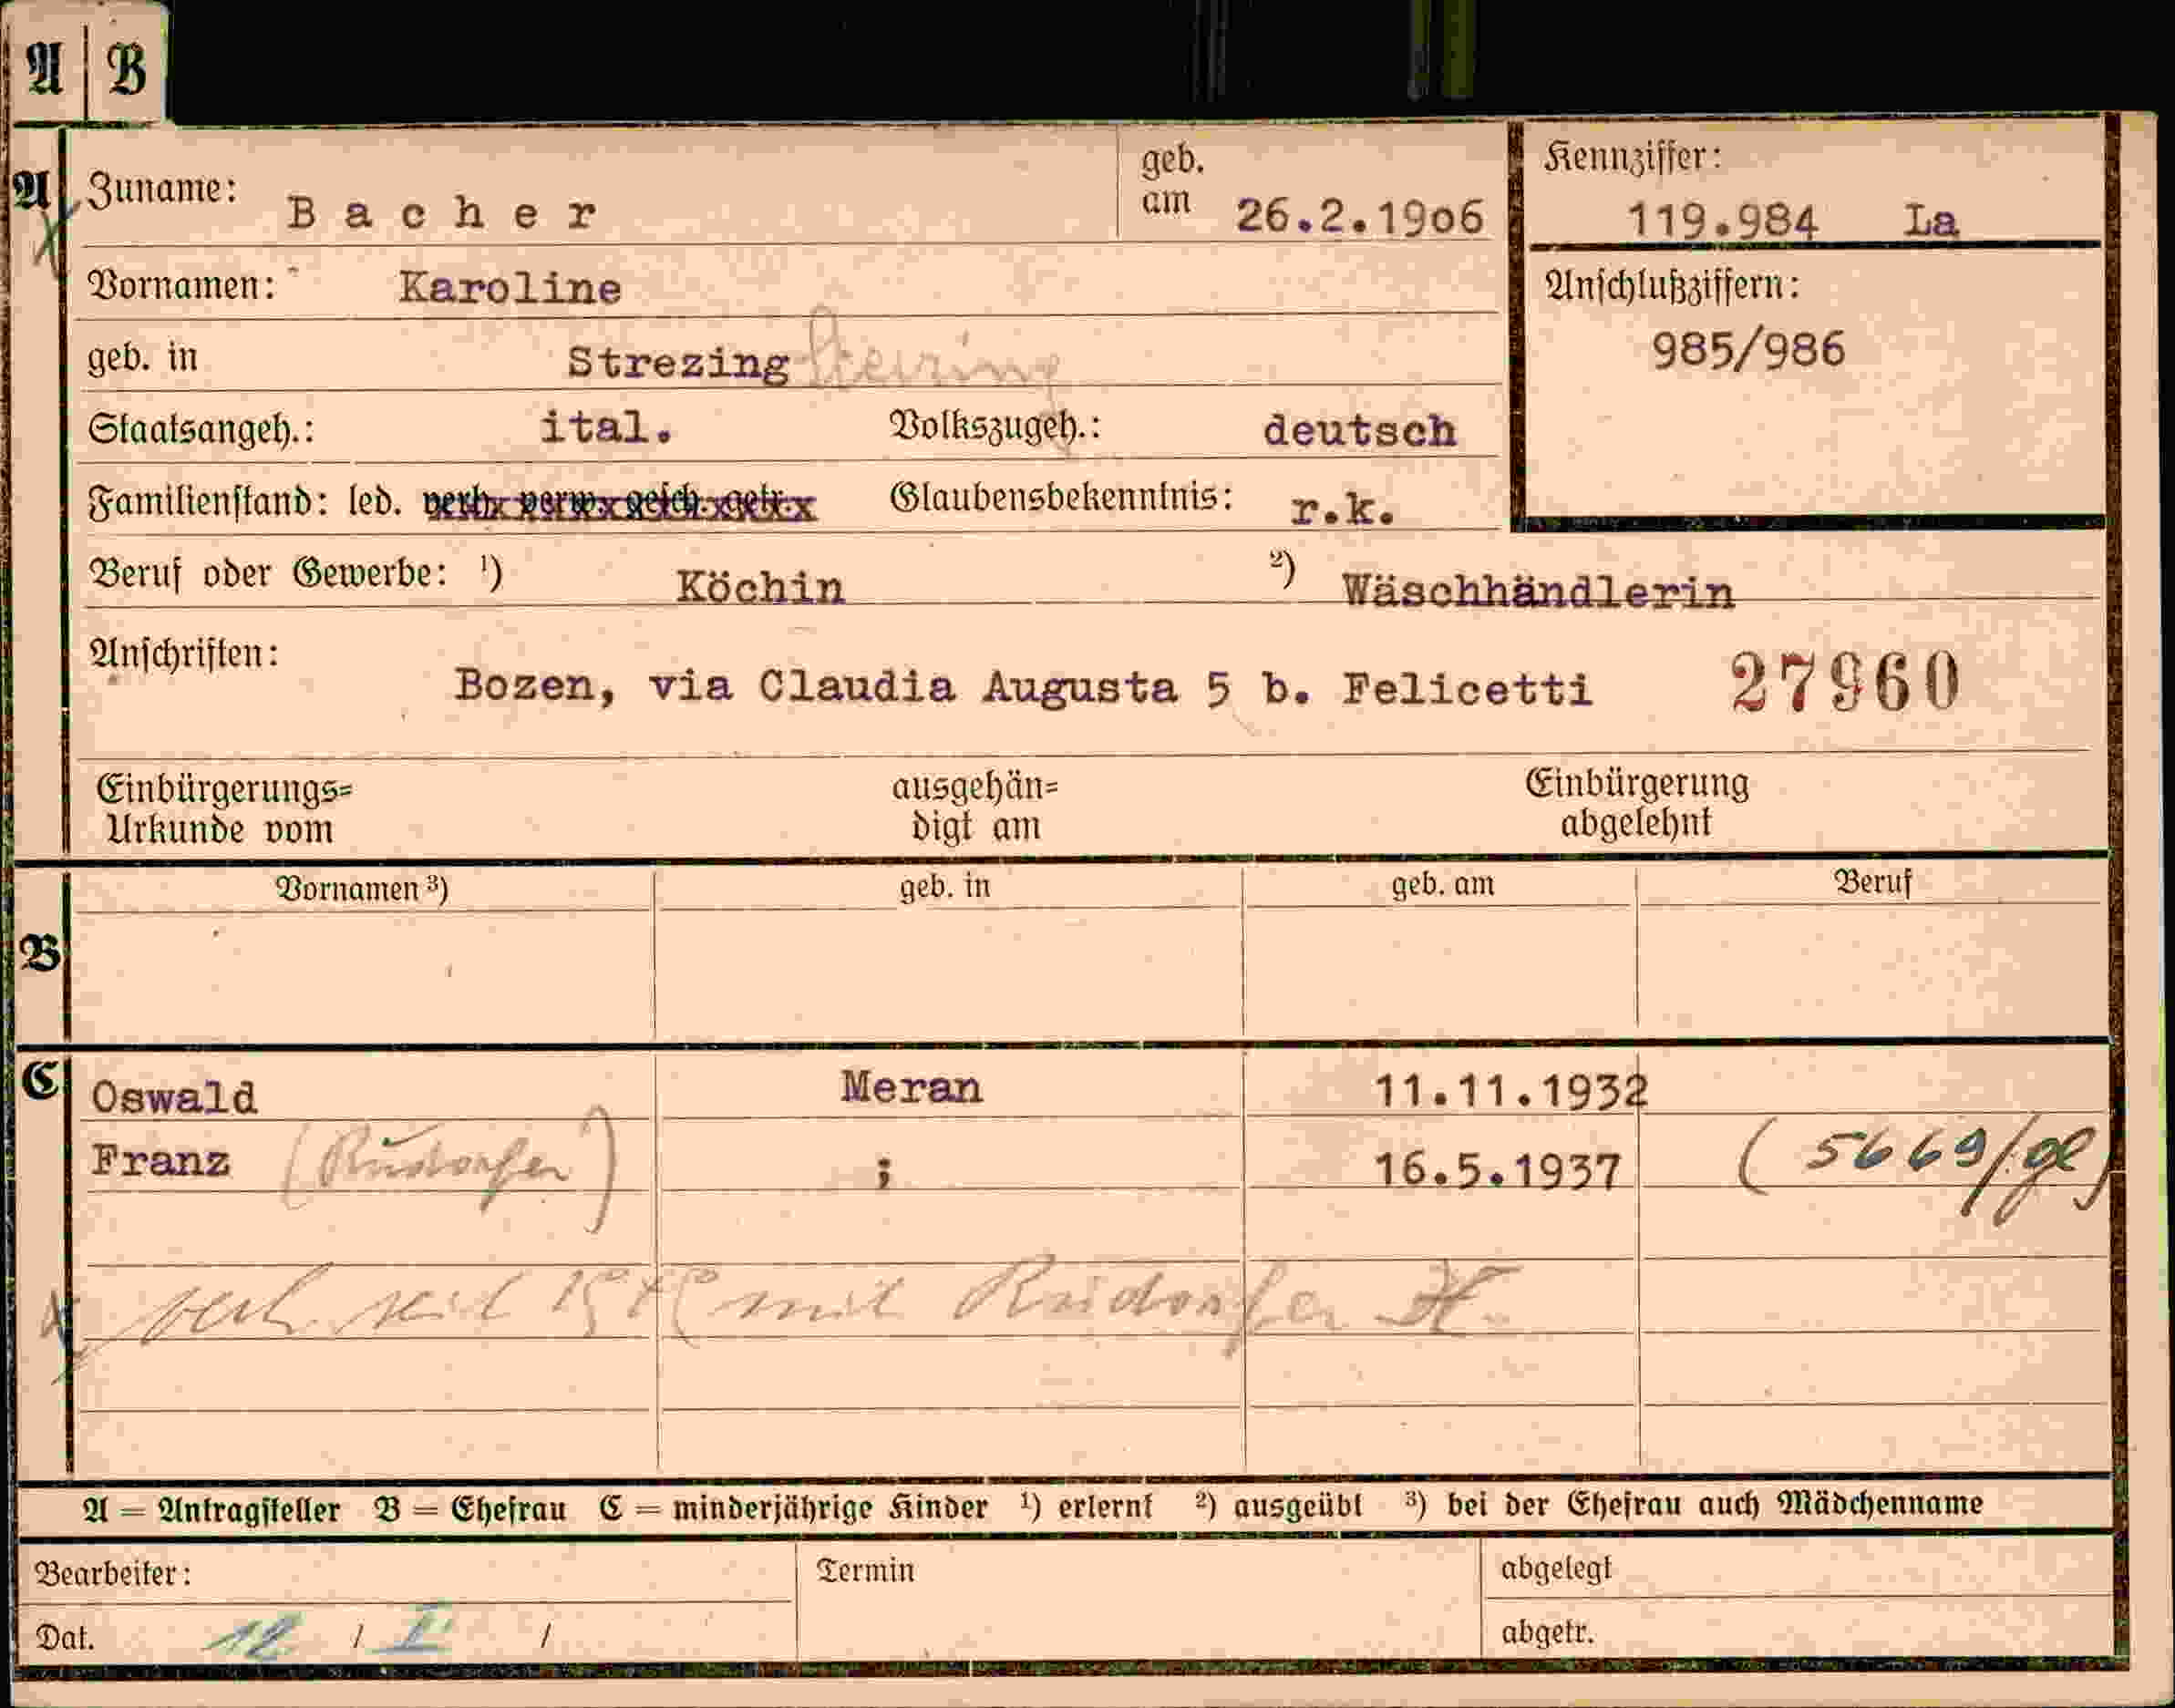 A | B
A Zuname: Bacher geb. am 26.2.1906 Kennziffer: 119.984 La
Vornamen: Karoline Anschlußziffern:
geb. in Strezing 985/986
Staatsangeh.: ital. Volkszugeh.: deutsch
Familienstand: led. verh. verw. gesch. getr. Glaubensbekenntnis: r.k.
Beruf oder Gewerbe: ¹) Köchin ²) Wäschhändlerin
Anschriften:
Bozen, via Claudia Augusta 5 b. Felicetti 27960
Einbürgerungs= ausgehän= Einbürgerung
Urkunde vom digt am abgelehnt
Vornamen ³) geb. in geb. am Beruf
B
C Oswald Meran 11.11.1932
Franz (Rudorfer) ; 16.5.1937 (5669/gl)
verh. seit mit Ruidorfer
A = Antragsteller B = Ehefrau C = minderjährige Kinder ¹) erlernt ²) ausgeübt ³) bei der Ehefrau auch Mädchenname
Bearbeiter: Termin abgelegt
Dat. 12 / I / abgetr.